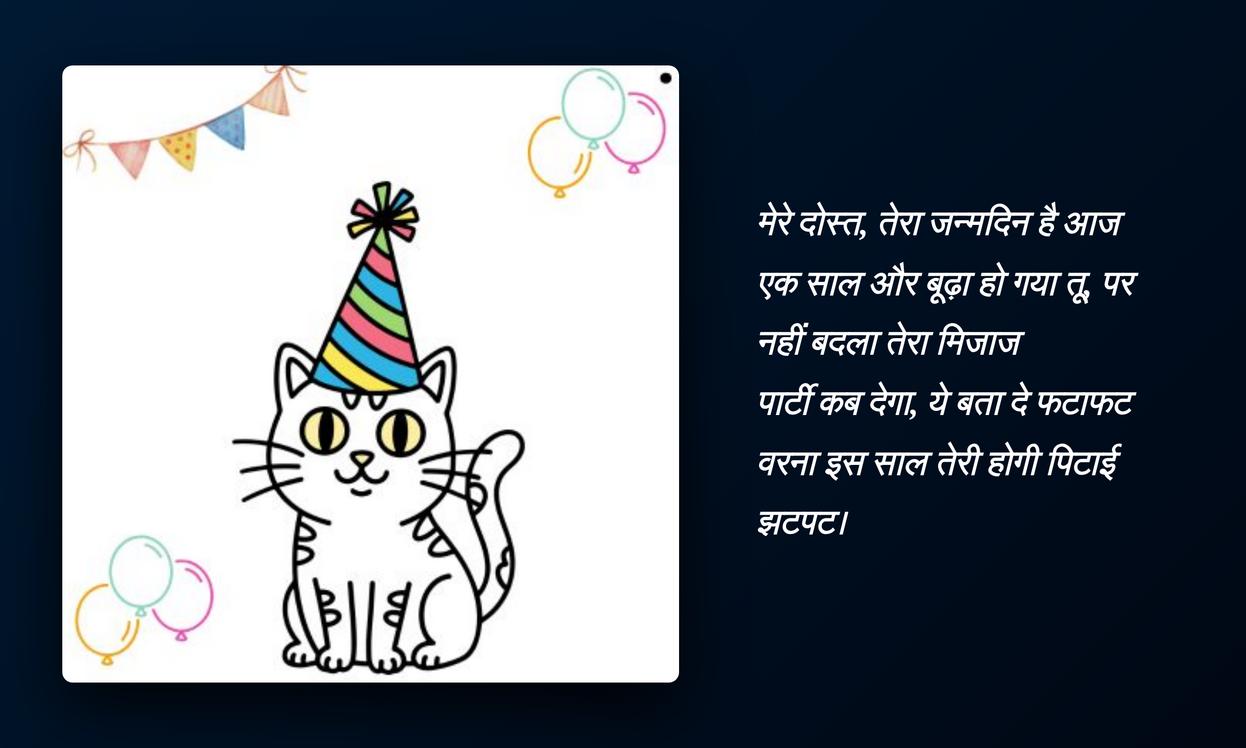 मेरे दोस्त, तेरा जन्मदिन है आज
एक साल और बूढ़ा हो गया तू, पर
नहीं बदला तेरा मिजाज
पार्टी कब देगा, ये बता दे फटाफट
वरना इस साल तेरी होगी पिटाई
झटपट।